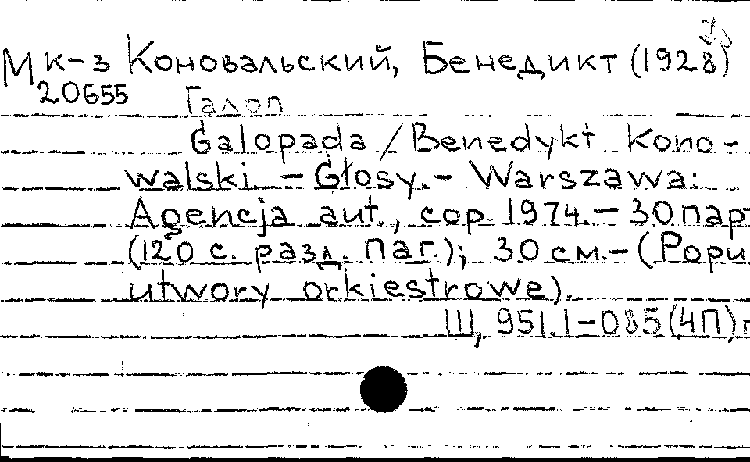 Мк-з Коновальский, Бенедикт (1928)
20655
Галоп
Galopada / Benedykt Kono-
walski. - Głosy. - Warszawa:
Agencja aut., cop 1974. - 30 пар
(120 с. разд. паг.); 30 см. - (Popu
utwory orkiestrowe).
III, 951.1-085(4П)